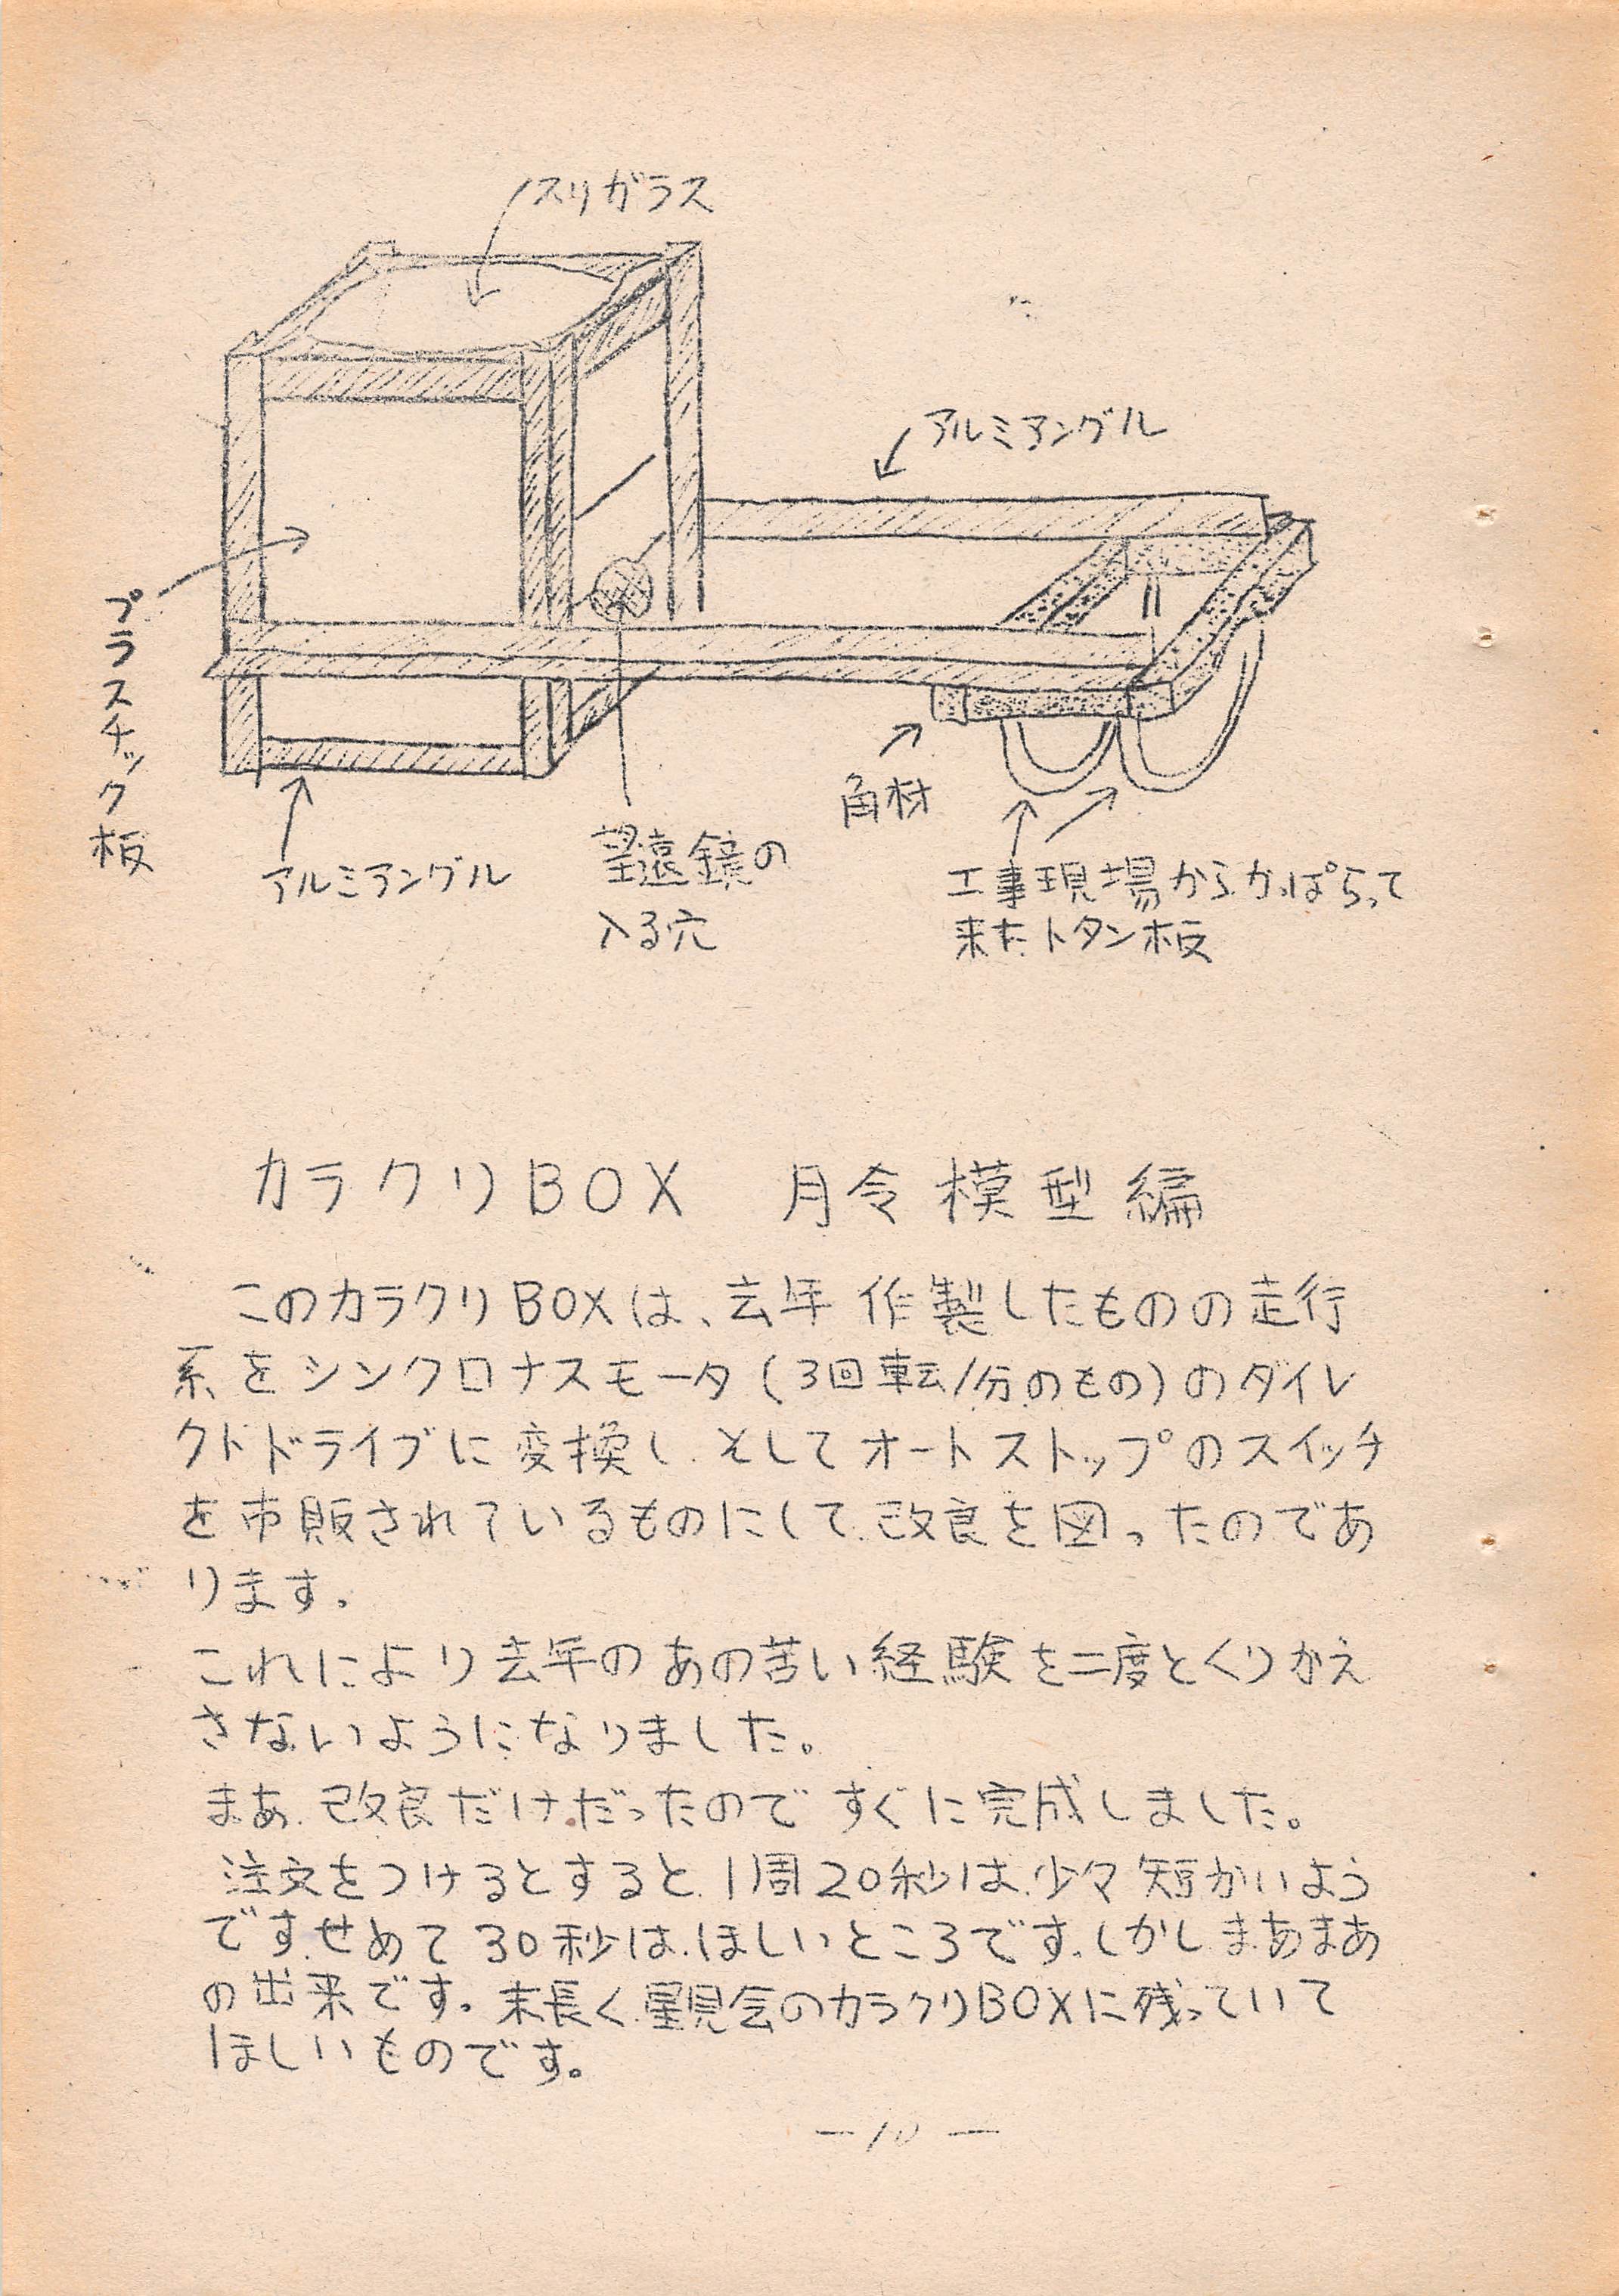 スリガラス
アルミアングル
プラスチック板
角材
アルミアングル
望遠鏡の
入る穴
工事現場からかっぱらって
来たトタン板
カラクリBOX 月令模型編
このカラクリBOXは、去年作製したものの走行
系をシンクロナスモータ(3回転/分のもの)のダイレ
クトドライブに変換し、そしてオートストップのスイッチ
を市販されているものにして、改良を図ったのであ
ります。
これにより去年のあの苦い経験を二度とくりかえ
さないようになりました。
まあ、改良だけだったのですぐに完成しました。
注文をつけるとすると、1周20秒は、少々短かいよう
です。せめて30秒は、ほしいところです。しかし、まあまあ
の出来です。末長く星見会のカラクリBOXに残っていて
ほしいものです。
―10―